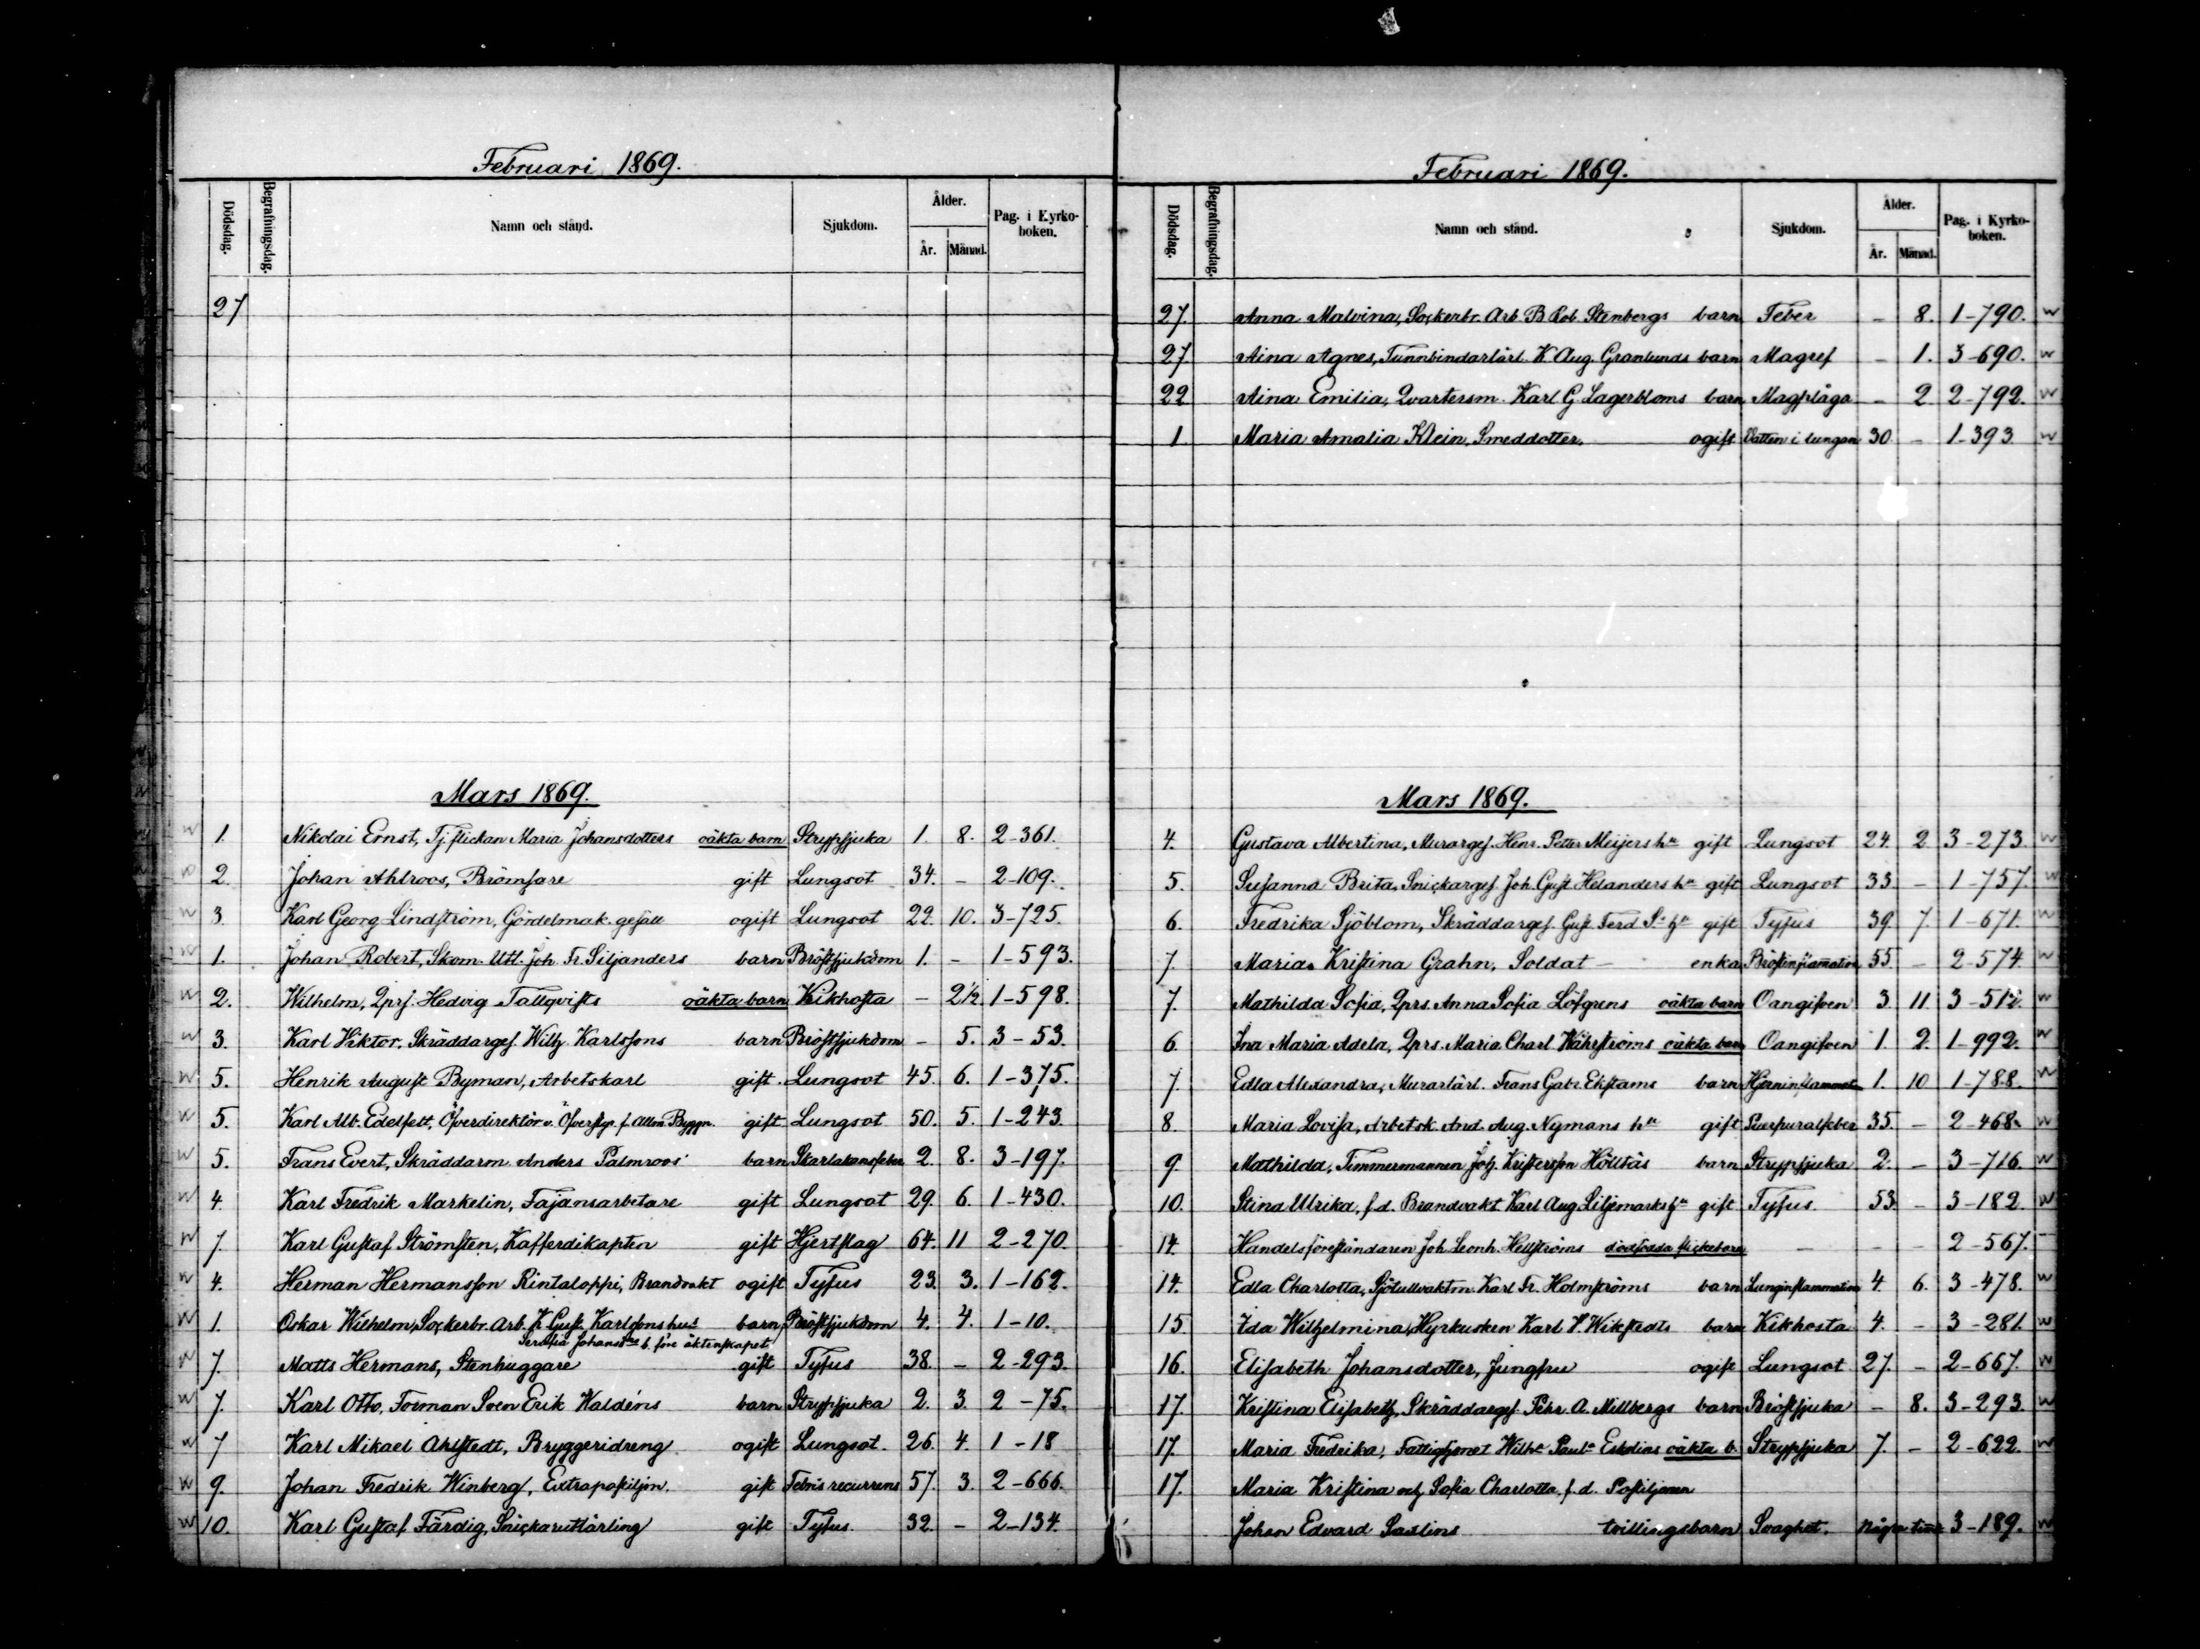 Februari 1869.
Dödsdag. Begrafningsdag. Namn och stånd. Sjukdom. Ålder. År. Månad. Pag. i Kyrkoboken.
27
Mars 1869.
1. Nikolai Ernst, Tj. flickan Maria Johansdotters oäkta barn Strypsjuka 1. 8. 2-361.
2. Johan Ahlroos, Bromsare gift Lungsot 34. - 2-109.
3. Karl Georg Lindström, Gördelmak. gesäll ogift Lungsot 22. 10. 3-725.
1. Johan Robert, Skom. Utl. Joh. Fr. Siljanders barn Bröstsjukdom 1. - 1-593.
2. Wilhelm, Qprs. Hedvig Tallqvists oäkta barn Kikhosta - 2½ 1-598.
3. Karl Viktor, Skräddarges. Wilh. Karlssons barn Bröstsjukdom - 5. 3-53.
5. Henrik August Byman, Arbetskarl gift. Lungsot 45. 6. 1-375.
5. Karl Alb. Edelfelt, Öfverdirektör v. Öfverstyr. f. Allm. Byggn. gift Lungsot 50. 5. 1-243.
5. Frans Evert, Skräddarm. Anders Palmroos' barn Skarlakansfeber 2. 8. 3-197.
4. Karl Fredrik Markelin, Fajansarbetare gift Lungsot 29. 6. 1-430.
7. Karl Gustaf Strömsten, Kofferdikapten gift Hjertslag 64. 11 2-270.
4. Herman Hermansson Rintaloppi, Brandvakt ogift Tyfus 23. 3. 1-162.
1. Oskar Wilhelm, Sockerbr. Arb. K. Gust. Karlssons hus: barn Bröstsjukdom 4. 4. 1-10.
Serafia Johansd:rs b. före äktenskapet
7. Matts Hermans, Stenhuggare gift Tyfus 38. - 2-293.
7. Karl Otto, Forman Sven Erik Waldéns barn Strypsjuka 2. 3. 2-75.
7 Karl Mikael Ahlstedt, Bryggeridreng ogift Lungsot. 26. 4. 1-18
9. Johan Fredrik Winberg, Extrapostiljon. gift Febris recurrens 57. 3. 2-666.
10. Karl Gustaf Färdig, Snickareutlärling gift Tyfus. 32. - 2-134.
Februari 1869.
Dödsdag. Begrafningsdag. Namn och stånd. Sjukdom. Ålder. År. Månad. Pag. i Kyrkoboken.
27. Anna Malvina, Sockerbr. Arb. B Rob. Stenbergs barn Feber - 8. 1-790.
27. Aina Agnes, Tunnbindarlärl. K. Aug. Granlunds barn Magref - 1. 3-690.
22 Aina Emilia, Qvartersm. Karl G Lagerbloms barn Magplåga - 2 2-792.
1 Maria Amalia Klein, Smeddotter, ogift Vatten i lungan 30. - 1-393
Mars 1869.
4. Gustava Albertina, Murarges. Henr. Petter Meijers h:u gift Lungsot 24. 2 3-273
5. Susanna Brita, Snickarges. Joh. Gust Helanders h:u gift Lungsot 33. - 1-757.
6. Fredrika Sjöblom, Skräddarges. Gust. Ferd S:s h:u gift Tyfus 39. 7. 1-671.
7. Maria Kristina Grahn, Soldat - enka Bröstinflammation 55. - 2-574.
7. Mathilda Sofia, Qprs. Anna Sofia Löfgrens oäkta barn Oangifven 3. 11.
6. Ina Maria Adela, Qprs. Maria Charl Wåhrströms oäkta barn Oangifven 1. 2. 1-992.
7. Edla Alexandra, Murarlärl. Frans Gabr. Ekstams barn Hjerninflammat. 1. 10 1-788.
8. Maria Lovisa, Arbetsk. And. Aug. Nymans h:u gift Puerpuralfeber 35. - 2-468.
9. Mathilda, Timmermannen Joh. Kristersson Hölltäs barn Strypsjuka 2. - 3-716.
10. Stina Ulrika, f.d. Brandvakt Karl Aug. Liljemarks h:u gift Tyfus. 53. - 3-182.
14. Handelsföreståndaren Joh. Leonh. Hellströms dödfödda flickebarn - - - 2-567.
14. Edla Charlotta, Sjötullvaktm. Karl Fr. Holmströms barn Lunginflammation 4. 6. 3-478.
15. Ida Wilhelmina, Hyrkusken Karl V. Wikstedts barn Kikhosta 4. - 3-281.
16. Elisabeth Johansdotter, Jungfru ogift Lungsot 27. - 2-667.
17. Kristina Elisabeth, Skräddarges. Pehr A. Millbergs barn Bröstsjuka - 8. 3-293.
17. Maria Fredrika, Fattighjonet Wilh:a Paul:a Eskolias oäkta b. Strypsjuka 7. - 2-622.
17. Maria Kristina och Sofia Charlotta, f.d. Postiljonen
Johan Edvard tvillingsbarn Svaghet. Några tim: 3-189.